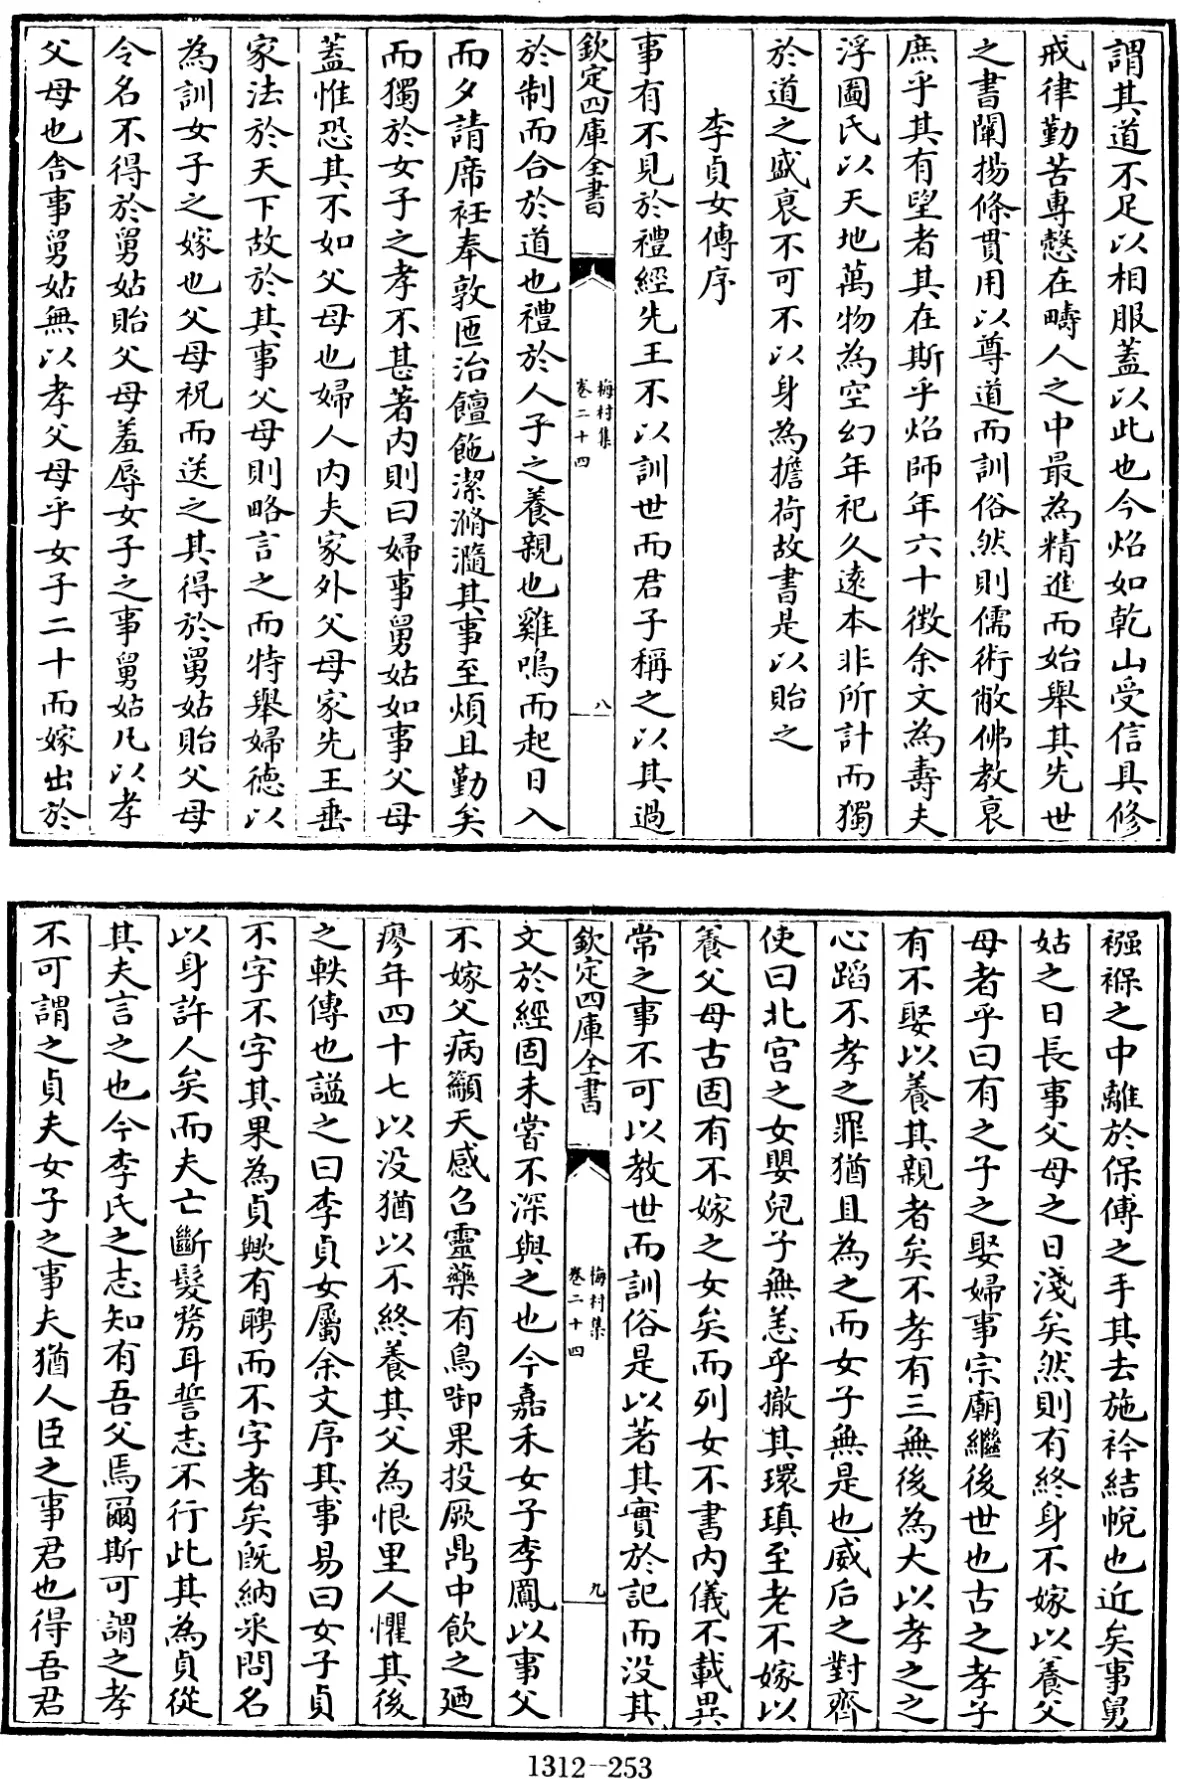 謂其道不足以相服蓋以此也今焰如乾山受信具修
戒律勤苦專慤在疇人之中最為精進而始舉其先世
之書闡揚條貫用以尊道而訓俗然則儒術敝佛教衰
庶乎其有望者其在斯乎焰師年六十徵余文為壽夫
浮圖氏以天地萬物為空幻年祀久遠本非所計而獨
於道之盛衰不可不以身為擔荷故書是以貽之
李貞女傳序
事有不見於禮經先王不以訓世而君子稱之以其過
欽定四庫全書
梅村集
卷二十四
八
於制而合於道也禮於人子之養親也雞鳴而起日入
而夕請席衽奉敦匜治饘飽潔滫瀡其事至煩且勤矣
而獨於女子之孝不甚著內則曰婦事舅姑如事父母
蓋惟恐其不如父母也婦人內夫家外父母家先王垂
家法於天下故於其事父母則略言之而特舉婦德以
為訓女子之嫁也父母祝而送之其得於舅姑貽父母
令名不得於舅姑貽父母羞辱女子之事舅姑凡以孝
父母也舍事舅姑無以孝父母乎女子二十而嫁出於
襁褓之中離於保傅之手其去施衿結帨也近矣事舅
姑之日長事父母之日淺矣然則有終身不嫁以養父
母者乎曰有之子之娶婦事宗廟繼後世也古之孝子
有不娶以養其親者矣不孝有三無後為大以孝之之
心蹈不孝之罪猶且為之而女子無是也威后之對齊
使曰北宮之女嬰兒子無恙乎撤其環瑱至老不嫁以
養父母古固有不嫁之女矣而列女不書內儀不載異
常之事不可以教世而訓俗是以著其實於記而没其
欽定四庫全書
梅村集
卷二十四
九
文於經固未嘗不深與之也今嘉禾女子李鳳以事父
不嫁父病籲天感召靈藥有鳥啣果投厥鼎中飲之廼
瘳年四十七以没猶以不終養其父為恨里人懼其後
之軼傳也諡之曰李貞女屬余文序其事易曰女子貞
不字不字其果為貞歟有聘而不字者矣既納采問名
以身許人矣而夫亡斷髮剺耳誓志不行此其為貞從
其夫言之也今李氏之志知有吾父焉爾斯可謂之孝
不可謂之貞夫女子之事夫猶人臣之事君也得吾君
1312--253